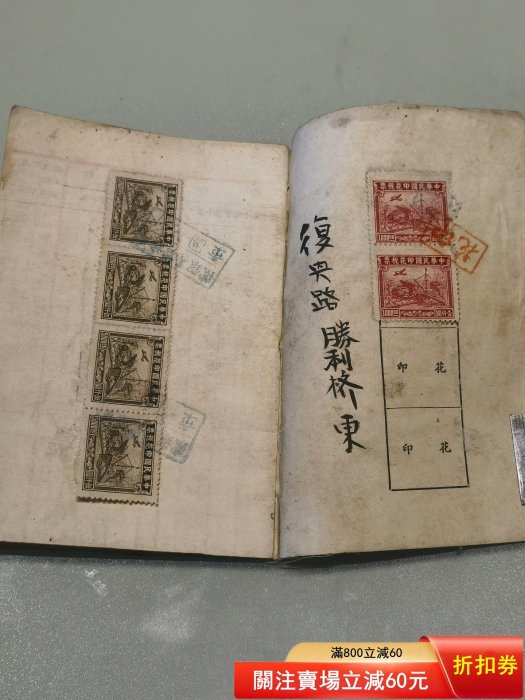 中華民國印花稅票
中華民國印花稅票
中華民國印花稅票
中華民國印花稅票
復興路
勝利桥東
中華民國印花稅票
1000
中華民國印花稅票
1000
花 印
花 印
滿800立減60
關注賣場立減60元
折扣券